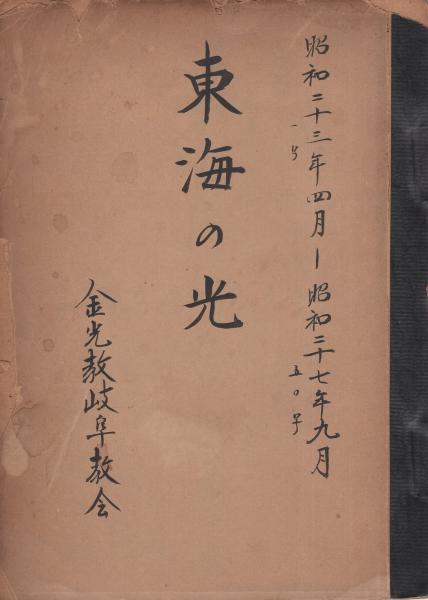 昭和二十三年四月ー昭和二十七年九月
一号
五〇号
東海の光
金光教岐阜教会